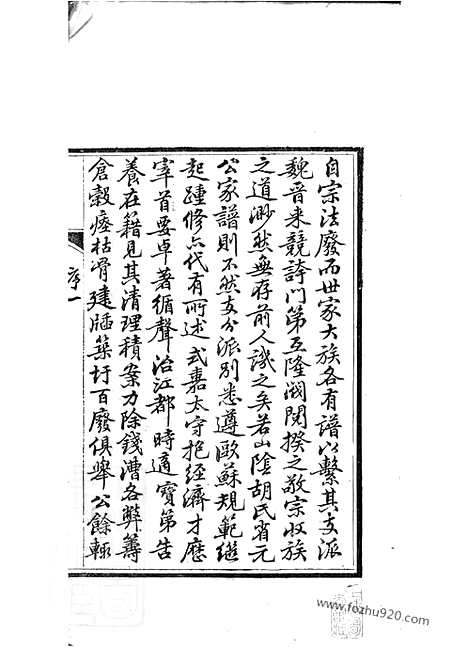 自宗法廢而世家大族各有譜以繫其支派
魏晉来競誇門第互隆閥閱揆之敬宗收族
之道渺然無存前人譏之矣若山陰胡氏省元
公家譜則不然支分派別悉遵歐蘇規範继
起踵修六代有所述式嘉太守抱經濟才歷
宰首要卓著循聲治江都時適寶第告
養在籍見其清理積案力除錢漕各弊籌
倉穀瘞枯骨建牐築圩百廢俱舉公餘輒
序一
www.fozhu920.com